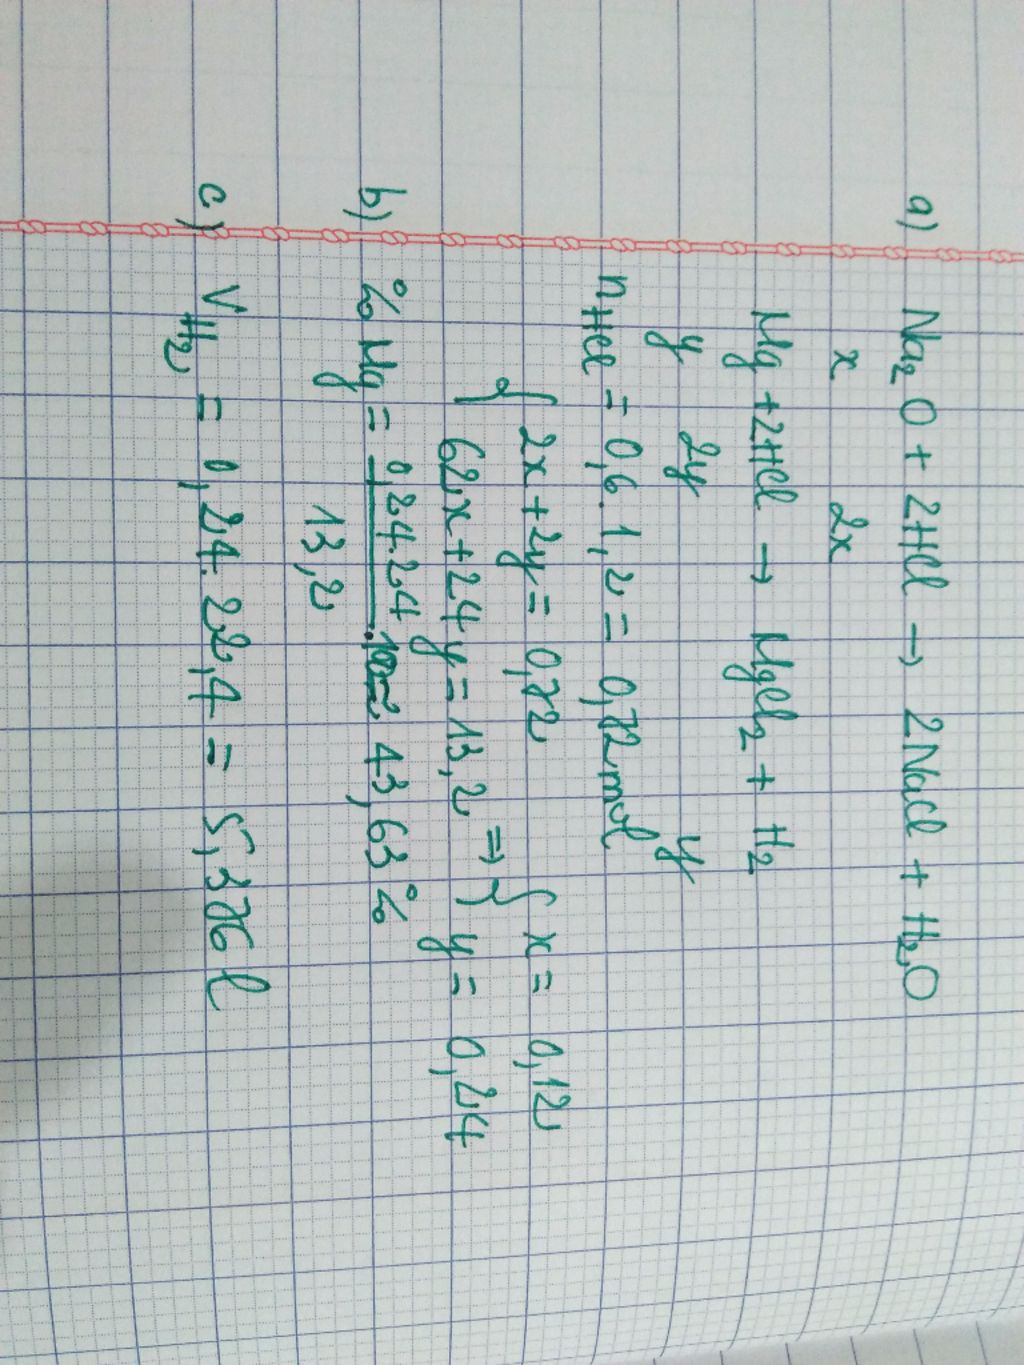 a) Na₂O + 2HCl → 2NaCl + H₂O
x 2x
Mg + 2HCl → MgCl₂ + H₂
y 2y y
nHCl = 0,6.1,2 = 0,72mol
{ 2x + 2y = 0,72 { x = 0,12
62x + 24y = 13,2 ⇒ y = 0,24
b) % Mg = 0,24.24 .100% = 43,63%
13,2
c) VH₂ = 0,24.22,4 = 5,376l